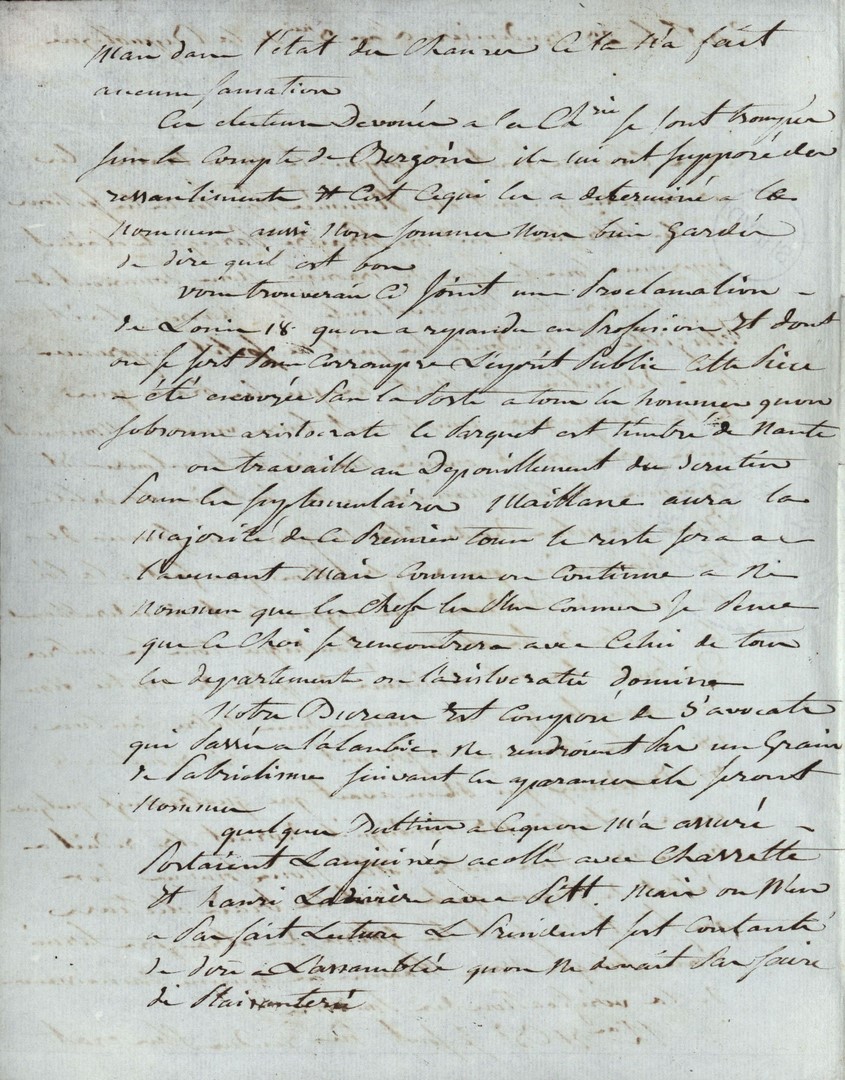 mais dans l'état des choses cela n'a fait
aucune sensation
Les electeurs devoués a la Ch.rie se sont trompés
sur le compte de Bergoin ils lui ont supposé des
ressentiments et c'est ce qui les a determiné a le
nommer aussi nous sommes nous bien gardés
de dire qu'il est bon
vous trouverais ci joint une Proclamation
de Louis 18 qu'on a repandu en Profusion et dont
on se sert pour corrompre L'esprit Public cette Piece
a été envoyée par la Poste a tous les hommes qu'on
subsonne aristocrate le Parquet est timbré de Nante
on travaille au Depouillement du scrutin
Pour les suplementaires Maillane aura la
majorité de ce Premier tour le reste sera a
l'avenant mais comme on continue a ne
nommer que les chefs les plus connus je Pense
que ce choi se rencontrera avec celui de tous
les departements ou l'aristocratie domine
Notre Bureau est composé de 5 avocats
qui Passés a l'alambic ne rendroient Pas un Grain
de Patriotisme suivant les aparances ils seront
nommés
quelques Bultins a ce qu'on m'a assuré
Portaient Lanjuinés acollé avec Charrette
et hanri Lariviere avec Pitt. mais on n'en
a Pas fait Lecture Le President s'est contanté
de dire a L'assamblée qu'on ne devait Pas faire
de Plaisanterie